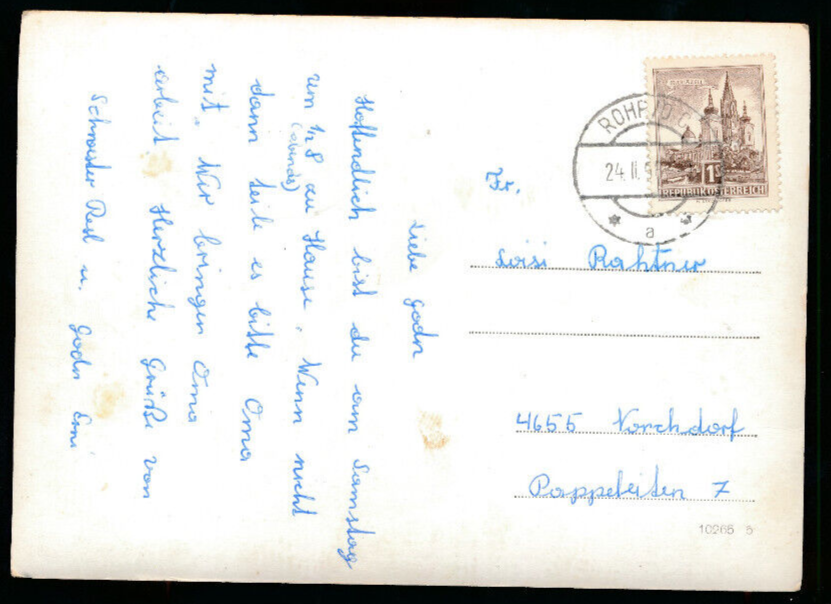 Liebe Godn
Hoffendlich bist du am Samstag
um 1/2 8 zu Hause. Wenn nicht
(abends)
dann teile es bitte Oma
mit. Wir bringen Oma
arbeit. Herzliche Grüße von
Schwester Resl u. Godn Emi
ROHR IO
24. II.
a
1S
REPUBLIK ÖSTERREICH
Fr.
Luisi Rahtner
4655 Vorchdorf
Pappeleiten 7
10265 5